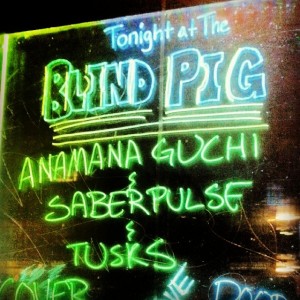 Tonight at The
BLIND PIG
ANAMANAGUCHI
&
SABERPULSE
&
TUSKS
COVER